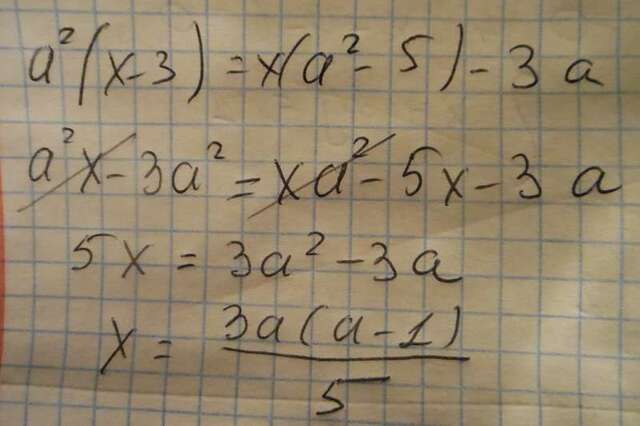 a²(x-3)=x(a²-5)-3a
a²x-3a²=xa²-5x-3a
5x=3a²-3a
x=3a(a-1)/5